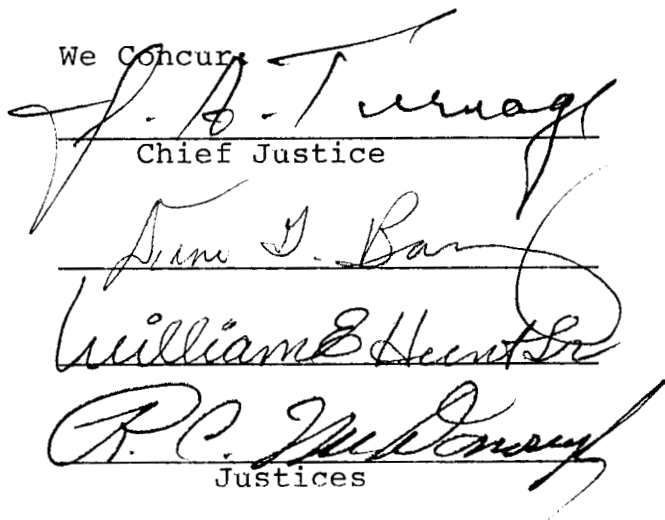 We Concur:
J. A. Turnage
Chief Justice
G. Bar
William E Hunt Sr
R. C. McDonough
Justices